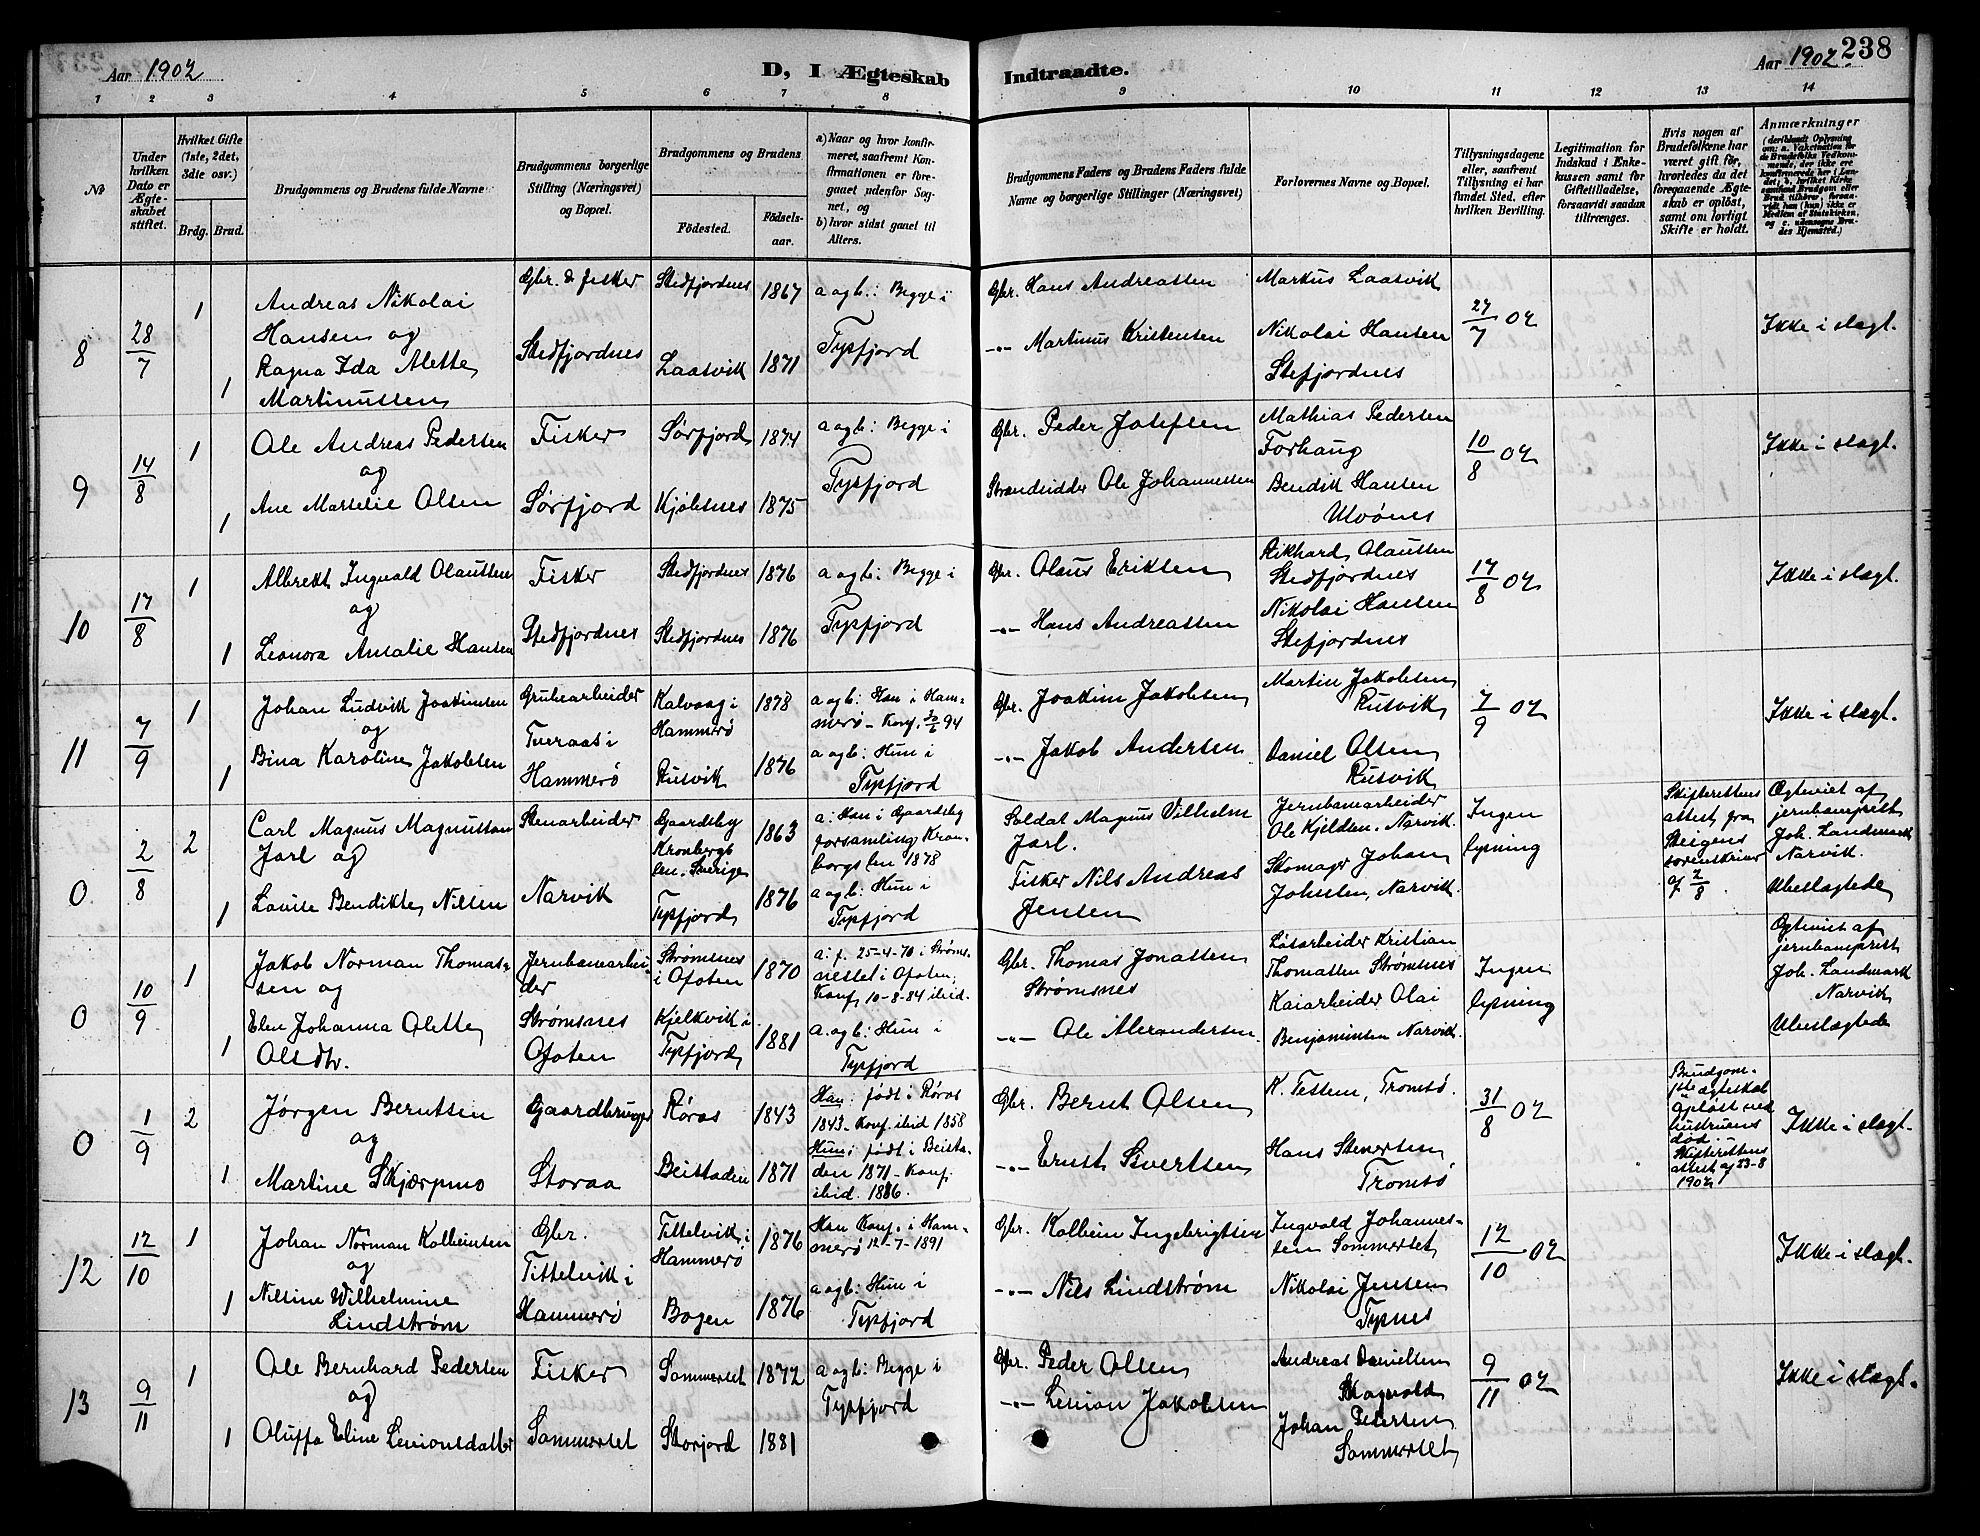 Aar 1902
D, I Ægteskab
Indtraadte.
Aar 1902.
238
1 2 3 4 5 6 7 8 9 10 11 12 13 14
No
Under hvilken Dato er Ægteskabet stiftet.
Hvilket Gifte (1ste, 2det, 3die osv.)
Brdg. Brud.
Brudgommens og Brudens fulde Navne
Brudgommens borgerlige Stilling (Næringsvei) og Bopæl.
Brudgommens og Brudens
Födested.
Födselsaar.
a) Naar og hvor konfirmeret, saafremt Konfirmationen er foregaaet udenfor Sognet, og
b) hvor sidst gaaet til Alters.
Brudgommens Faders og Brudens Faders fulde Navne og borgerlige Stillinger (Næringsvei)
Forlovernes Navne og Bopæl.
Tillysningsdagene eller, saafremt Tillysning ei har fundet Sted, efter hvilken Bevilling.
Legitimation for Indskud i Enkekassen samt for Giftetilladelse, forsaavidt saadan tiltrænges.
Hvis nogen af Brudefolkene har været gift för, hvorledes da det foregaaende Ægteskab er oplöst, samt om lovligt Skifte er holdt.
Anmærkninger
8 28/7 1
Andreas Nikolai
Hansen og
Ragna Ida Alette
1 Martinussen
Gbr. & fisker
Stedfjordnes
Stedfjordnes 1867
Laasvik 1871
a og b: Begge i
Tysfjord
Gbr. Hans Andreassen
-"- Martinus Kristensen
Markus Laasvik
Nikolai Hansen
Stefjordnes
27/7 02
Ikke i slægt.
9 14/8 1
Ole Andreas Pedersen
og
1 Ane Marselie Olsen
Fisker
Sørfjord
Sørfjord 1874
Kjölsnes 1875
a og b: Begge i
Tysfjord
Gbr. Peder Josefsen
Strandsidder Ole Johannessen
Mathias Pedersen
Forhaug
Bendik Hansen
Ulvönes
10/8 02
Ikke i slægt.
10 17/8 1
Albrekt Ingvald Olaussen
og
1 Leonora Amalie Hansen
Fisker
Stedfjordnes
Stedfjordnes 1876
Stedfjordnes 1876
a og b: Begge i
Tysfjord
Gbr. Olaus Eriksen
-"- Hans Andreassen
Rikhard Olaussen
Stedfjordnes
Nikolai Hansen
Stefjordnes
17/8 02
Ikke i slægt.
11 7/9 1
Johan Ludvik Joakimsen
og
1 Bina Karoline Jakobsen
Grubearbeider
Tveraas i
Hammerö
Kalvaag i 1878
Hammerö
Rusvik 1876
a og b: Han i Hammerö - Konf. 94
a og b: Hun i
Tysfjord
Gbr. Joakim Jakobsen
-"- Jakob Andersen
Martin Jakobsen
Rusvik
Daniel Olsen
Rusvik
7/9 02
Ikke i slægt.
0. 2/8 2
Carl Magnus Magnusson
Jarl og
1 Louise Bendikte Nilsen
Stenarbeider
Narvik
Gaardsby 1863
Kronbergs
len. Sverige
Tysfjord 1876
a: Han i Gaardsby
forsamling Kronborgs len 1878
a og b: Hun i
Tysfjord
Soldat Magnus Vilhelm
Jarl.
Fisker Nils Andreas
Jensen
Jernbanearbeider
Ole Kjeldsen. Narvik
Skomager Johan
Johnsen, Narvik.
Ingen
lysning
Skifterettens
attest fra
Steigens
sorenskriver
af 2/8.
Egteviet af
jernbaneprest
Joh. Landmark
Narvik.
Ubeslægtede
0 10/9 1
Jakob Norman Thomassen og
Elen Johanna Olette
1 Olsdtr.
Jernbanearbeider
Strømsnes
Ofoten
Strømsnes 1870
i Ofoten
Kjelkvik i 1881
Tysfjord
a: f. 25-4-70 i Strømsnesset i Ofoten.
Konf. 10-8-84 ibid.
a. og b: Hun i
Tysfjord
Gbr. Thomas Jonassen
Strømsnes
-"- Ole Alexandersen
Løsarbeider Kristian
Thomassen Strømsnes
Kaiarbeider Olai
Benjaminsen Narvik.
Ingen
lysning
Egteviet af
jernbaneprest
Joh. Landmark
Narvik
Ubeslægtede
0 1/9 2
Jørgen Berntsen
og
1 Martine Skjærpmo
Gaardbruger
Storaa
Røros 1843
Beistaden 1871
Han: født i Røros
1843 - Konf. ibid 1858
Hun: født i Beistaden 1871 - Konf.
ibid. 1886.
Gbr. Bernt Olsen
-"- Ernst Sivertsen
K. Testem, Tromsö.
Hans Stenersen
Tromsö
31/8 02
Brudgom.
1ste ægteskab
opløst ved
hustruens
død. -
Skifterettens
attest af 23-8
1902
Ikke i slægt.
12 12/10 1
Johan Norman Kolbeinsen
og
1 Nilsine Wilhelmine
Lindstrøm
Gbr.
Tittelvik i
Hammerö
Tittelvik i 1876
Hammerö
Bogen 1876
Han Konf. i Hammerö 12-7-1891
a og b: Hun i
Tysfjord
Gbr. Kolbein Ingebrigtsen
-"- Nils Lindstrøm
Ingvald Johannessen Sommerset
Nikolai Jensen
Tysnes
12/10 02
Ikke i slægt.
13 9/11 1
Ole Bernhard Pedersen
og
1 Oluffa Eline Simonsdatter
Fisker
Sommerset
Sommerset 1872
Storjord 1881
a og b: Begge i
Tysfjord
Gbr. Peder Olsen
-"- Simon Jakobsen
Andreas Danielsen
Skogvold
Johan Pedersen
Sommerset
9/11 02
Ikke i slægt.